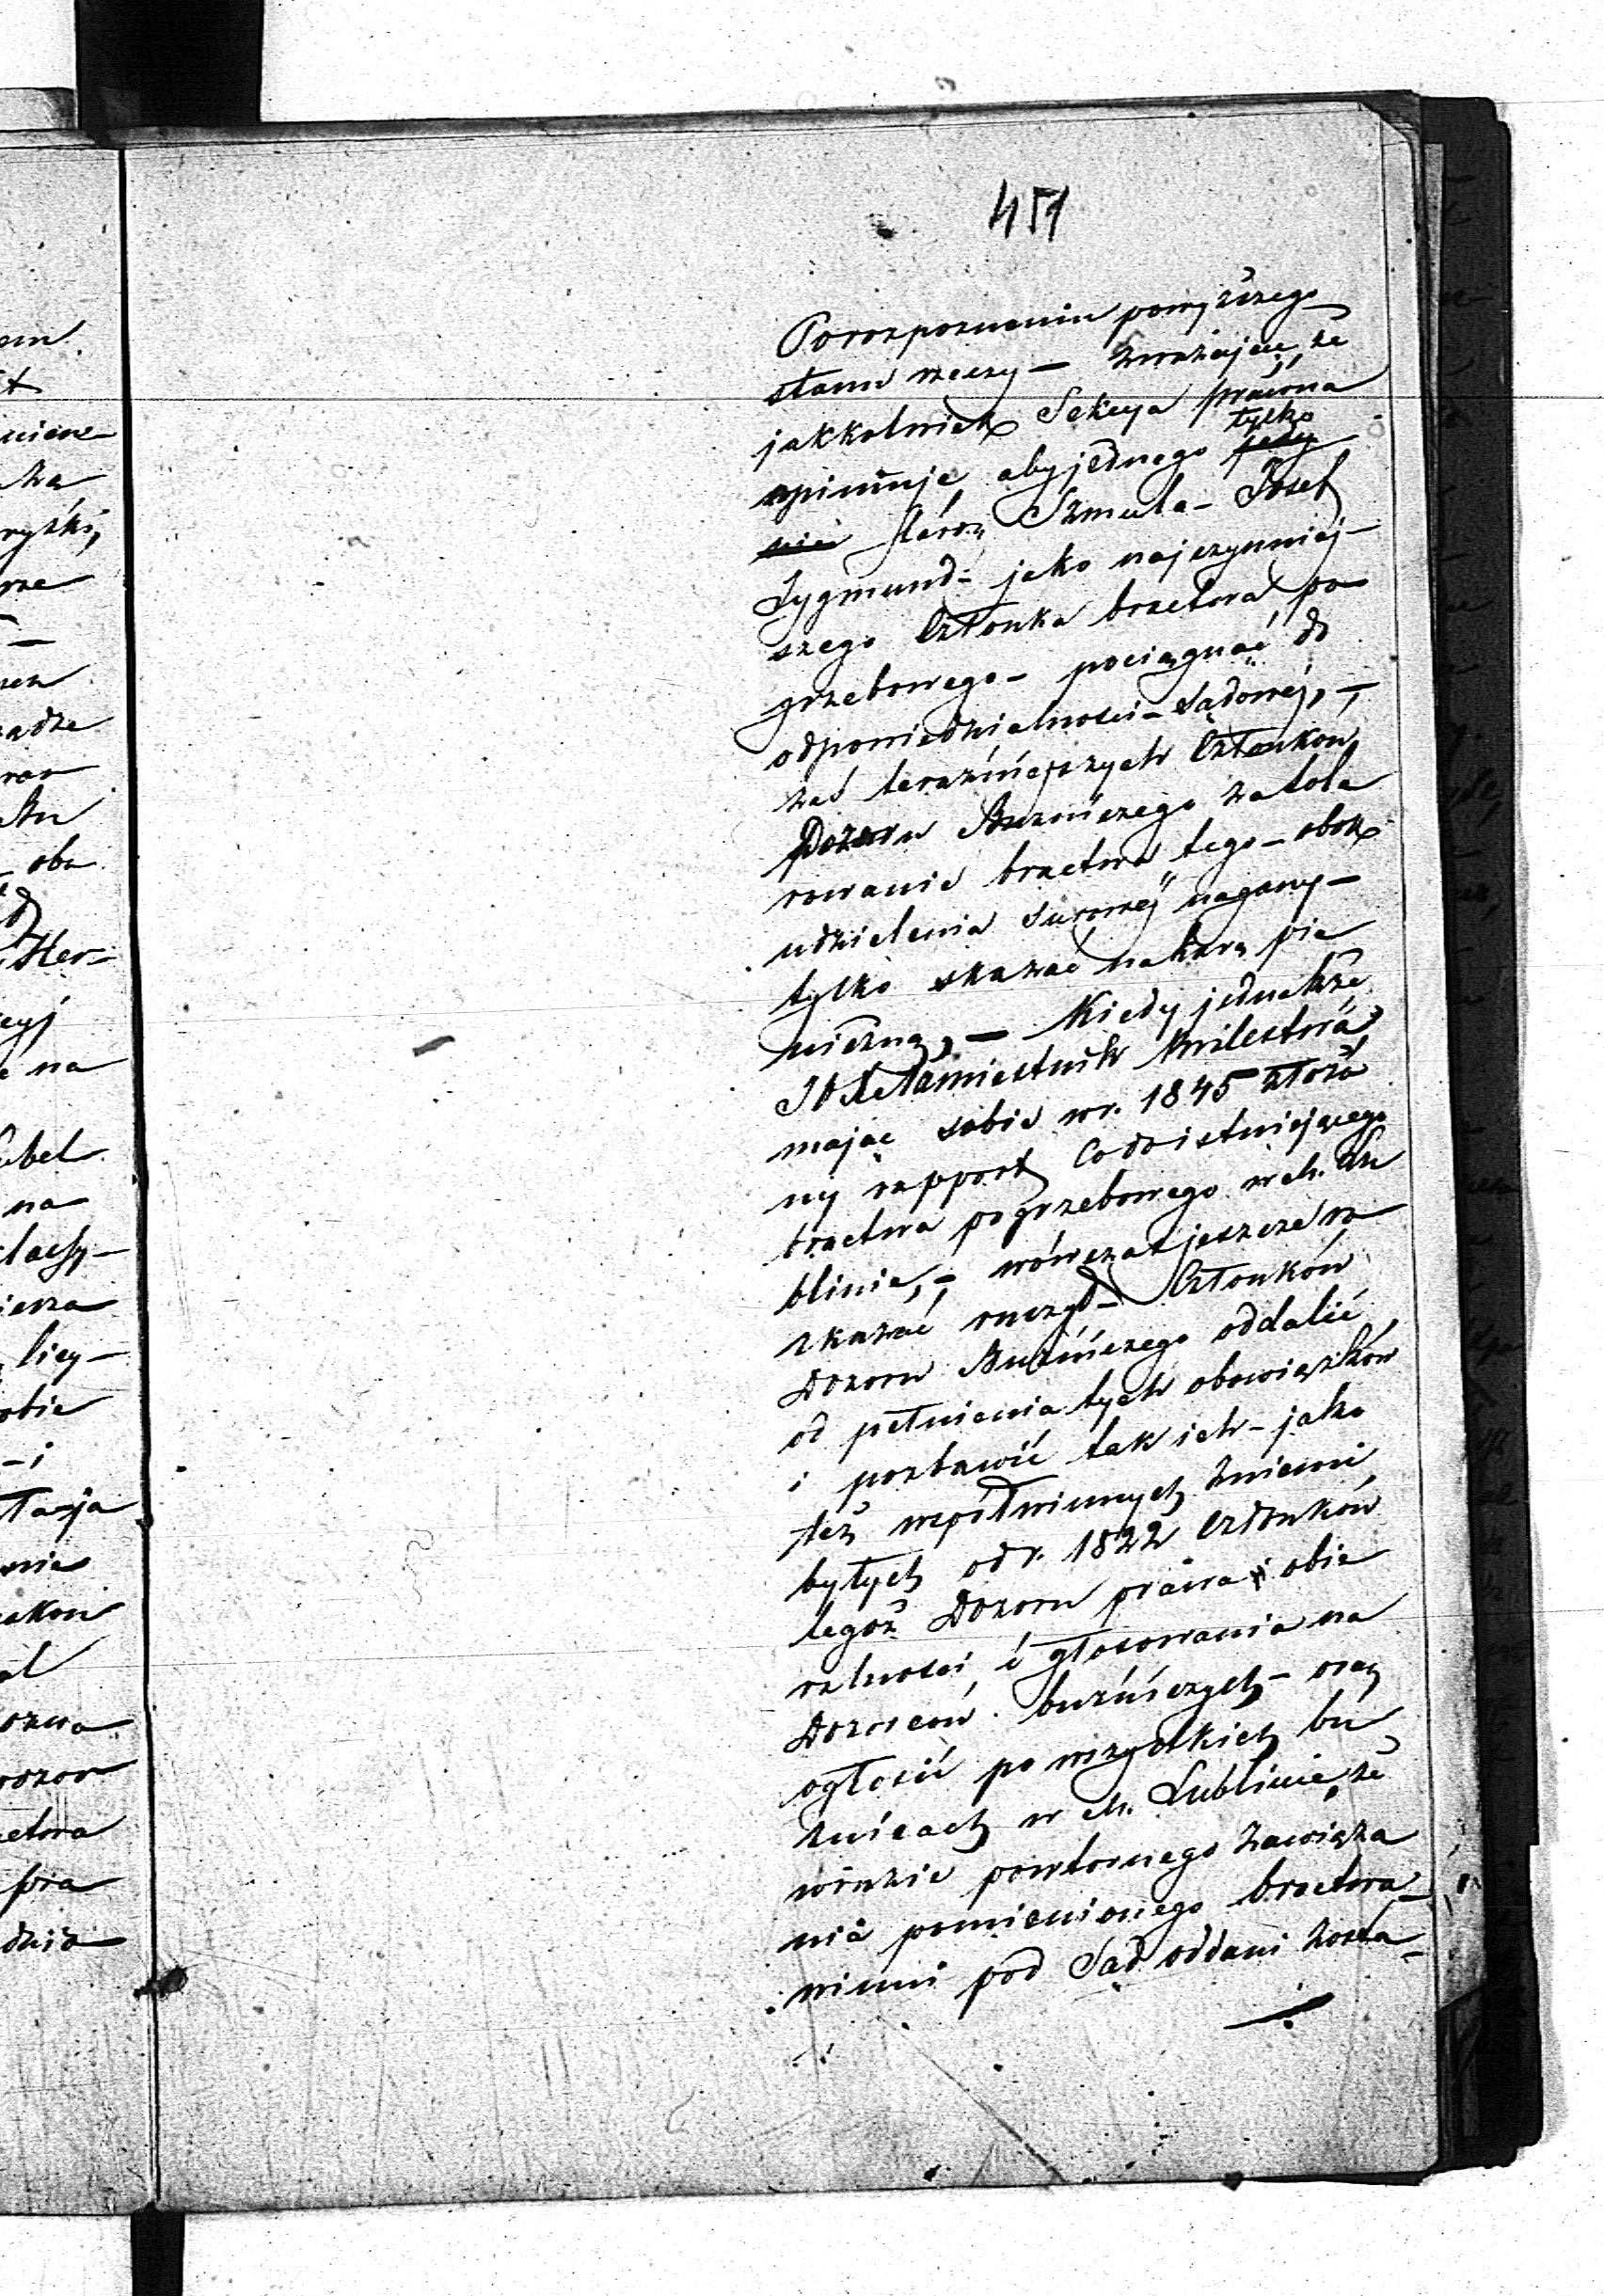 451
Po rozpoznaniu powyższego
stanu rzeczy – zważając, że
jakkolwiek Sekcya prawna
opiniuje, aby jednego tylko
Szmula – Josef
Zygmund – jako najczynniej-
szego Członka bractwa po
grzebowego – pociągnąć do
odpowiedzialności – Sądowéj, –
zaś teraźniejszych Członków
Dozoru Bużniczego za tole
rowanie bractwa tego – obok
udzielenia surowej nagany –
tylko skazać na karę pie
niężną, – Kiedy jednakże
JO Xże Namiestnik Królestwa
mając sobie w r. 1845 złożo
ny rapport co do istniejącego
bractwa pogrzebowego w m. Lu
blinie, – wówczas jeszcze ro
zkazać raczył – Członków
Dozoru Bużniczego oddalić
od pełnienia tych obowiązków
i pozbawić tak ich – jako
też współwinnych z niemi
byłych od r. 1822 Członków
tegoż Dozoru prawa obie
ralności i głosowania na
Dozorców bużniczych – oraz
ogłosić po wszystkich bu
żnicach w m. Lublinie, że
w razie powtórnego zawiąza
nia pomienionego bractwa –
winni pod Sąd oddani zosta-
em
wien-
za
rze
adze
oba
Her-
na
ubel
na
licy-
obie
– i
nie
pra